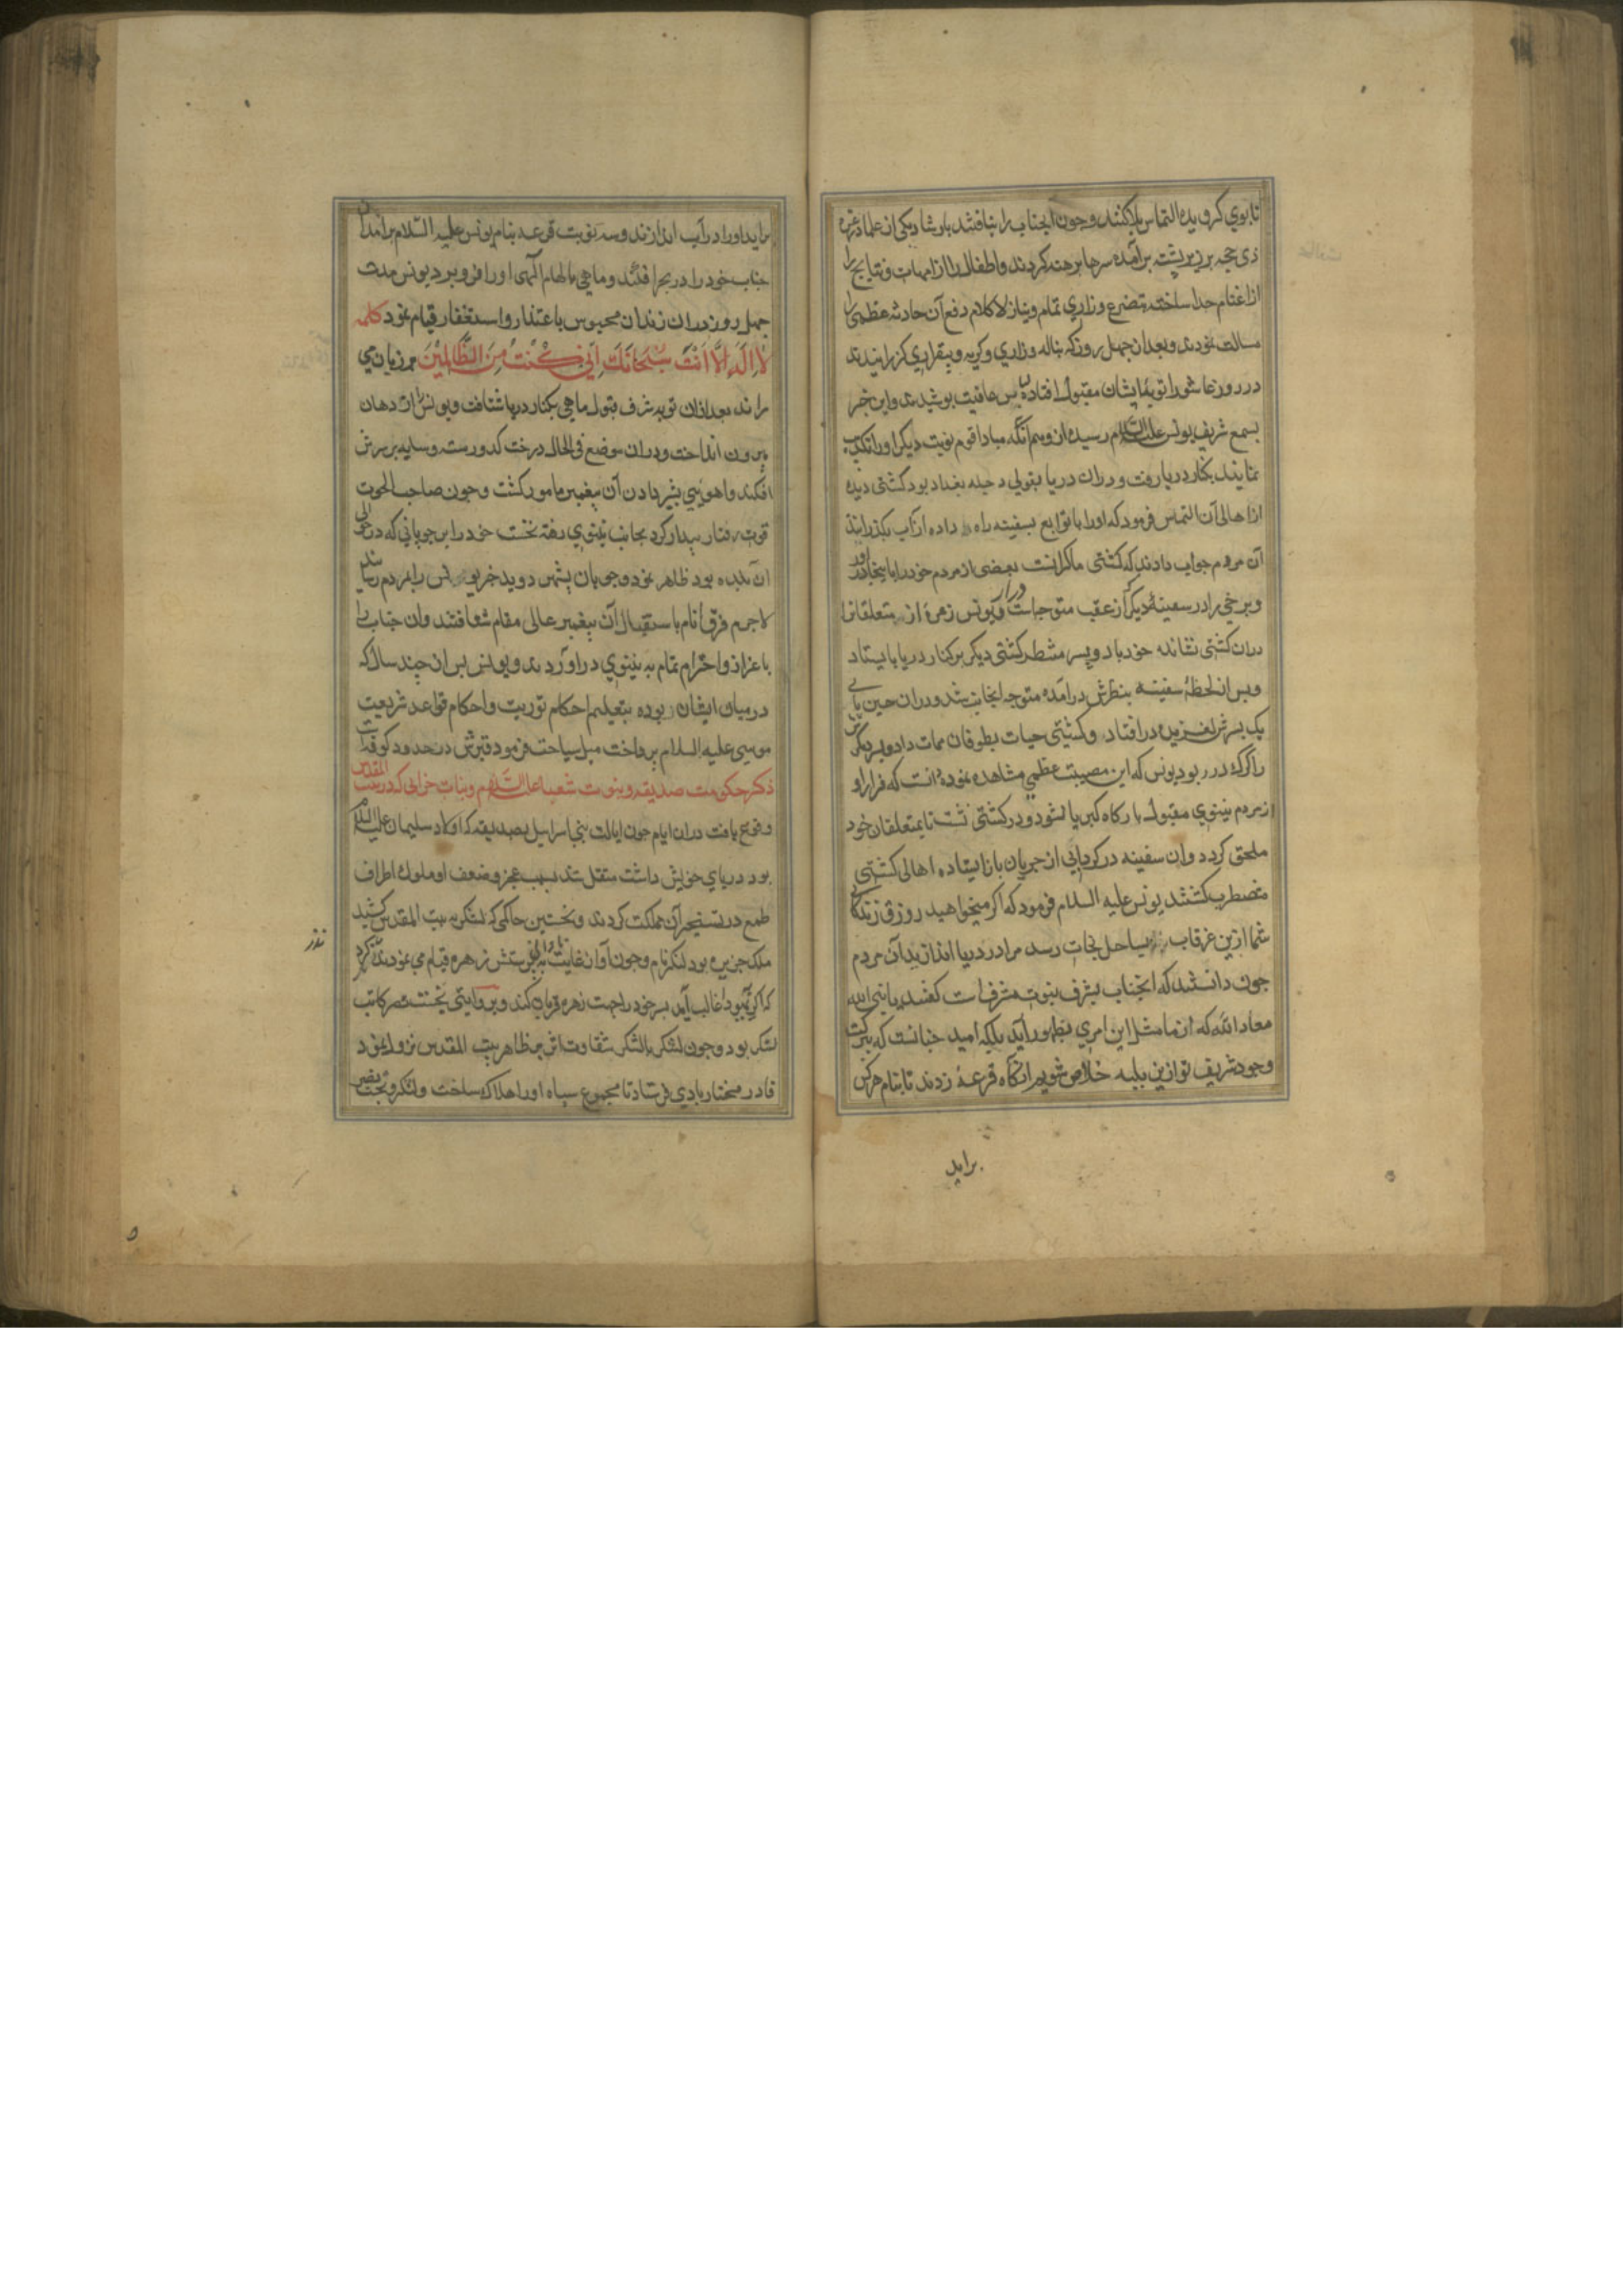 تا بوی کرویده التماس بلا کنند و چون آنجناب را نیافتند باوشاد یکی از علما در غره
ذی حجه بر زبر پشته برآمده سرها برهنه کردند و اطفال را از امهات و نتایج را
از اغنام جدا ساخته بتضرع و زاری تمام و نیاز لاکلام دفع آن حادثه عظمی را
مسالت نمودند و بعد از چهل روز که بناله و زاری و کریه و بیقراری کزرانیدند
در روز عاشورا توبهٔ ایشان مقبول افتاده لباس عافیت پوشیدند و این خبر
بسمع شریف یونس علیه السلام رسیده از وهم آنکه مبادا قوم نوبت دیکر او را تکذیب
نمایند بکنار دریا رفت و دران دریا بقولی دجله بغداد بود کشتی دیده
از اهالی آن التماس فرمود که او را با توابع بسفینه راه داده از آب بکذرانند
آن مردم جواب دادند که کشتی ما کرانست بعضی از مردم خود را باینجا در آور
و برخی را در سفینهٔ دیکر که از عقب متوجه است درار و یونس زمرهٔ از متعلقانرا
دران کشتی نشانده خود با دو پسر منتظر کشتی دیکر بر کنار دریا بایستاد
و پس از لحظهٔ سفینه بنظرش درآمده متوجه آنجانب شد و دران حین پای
یک پسرش لغزیده در افتاد و کشتی حیات بطوفان ممات داد و پسر دیکرش
را کرک در ربود یونس که این مصیبت عظمی مشاهده نمود دانست که فرار او
از مردم نینوی مقبول بارکاه کبریا نشود و در کشتی نشست تا بمتعلقان خود
ملحق کردد و آن سفینه در کردابی از جریان باز ایستاده اهالی کشتی
مضطرب کشتند یونس علیه السلام فرمود که اکر میخواهید زورق زندکانی
شما ازین غرقاب بساحل نجات رسد مرا در دریا اندازید آن مردم
چون دانستند که آنجناب بشرف نبوت مشرف است کفتند یا نبی الله
معاذ الله که از ما مثل این امری بظهور آید بلکه امید چنانست که ببرکت
وجود شریف تو ازین بلیه خلاص شویم انکاه قرعه زدند تا بنام هرکس
براید
براید او را در آب اندازند و سه نوبت قرعه بنام یونس علیه السلام برامد آن
جناب خود را در بحر افکند و ماهی بالهام الهی او را فرو برد یونس مدت
چهل روز دران زندان محبوس باعتذار و استغفار قیام نمود کلمه
لا اله الا انت سبحانک انی کنت من الظالمین بر زبان می
راند بعد ازان توبه شرف قبول ماهی بکنار دریا شتافت و یونس را از دهان
بیرون انداخت و دران موضع فی الحال درخت کدو رست و سایه بر سرش
افکند و اهوئی بشیر دادن آن پیغمبر مامور کشت و چون صاحب الحوت
قوت رفتار پیدا کرد بجانب نینوی رفته نخست خود را بر چوپانی که در حوالی
آن بلده بود ظاهر نمود و چوپان بشهر دوید خبر یونس را بمردم رسانید
لاجرم فرق انام باستقبال آن پیغمبر عالی مقام شتافتند و آن جناب را
باعزاز و احترام تمام به نینوی در آوردند و یونس پس از چند سال که
در میان ایشان بوده بتعلیم احکام توریت و احکام قواعد شریعت
موسی علیه السلام پرداخت میل سیاحت فرمود قبرش در حدود کوفه است
ذکر حکومت صدیقه و نبوت شعیا علیه السلام و بیان خرابی که در بیت المقدس
وقوع یافت دران ایام چون ایالت بنی اسرایل بصدیقه که از اولاد سلیمان علیه السلام
بود و ریای خویش داشت منتقل شد بسبب عجز و ضعف او ملوک اطراف
طمع در تسخیر آن مملکت کردند و نخستین حاکمی که لشکر به بیت المقدس کشید
ملک جزیره بود لنکر نام و چون آوان غایت به پرستش زهره قیام می نمودند نذر کرد
نذر
که اکر بر یهودا غالب آید پسر خود را جهت زهره قربان کند و بروایتی بختنصر کاتب
لنکر بود و چون لنکر با لشکر شقاوت اثر بر ظاهر بیت المقدس نزول نمود
قادر مختار بادی فرستاد تا مجموع سپاه او را هلاک ساخت و لنکر و بختنصر